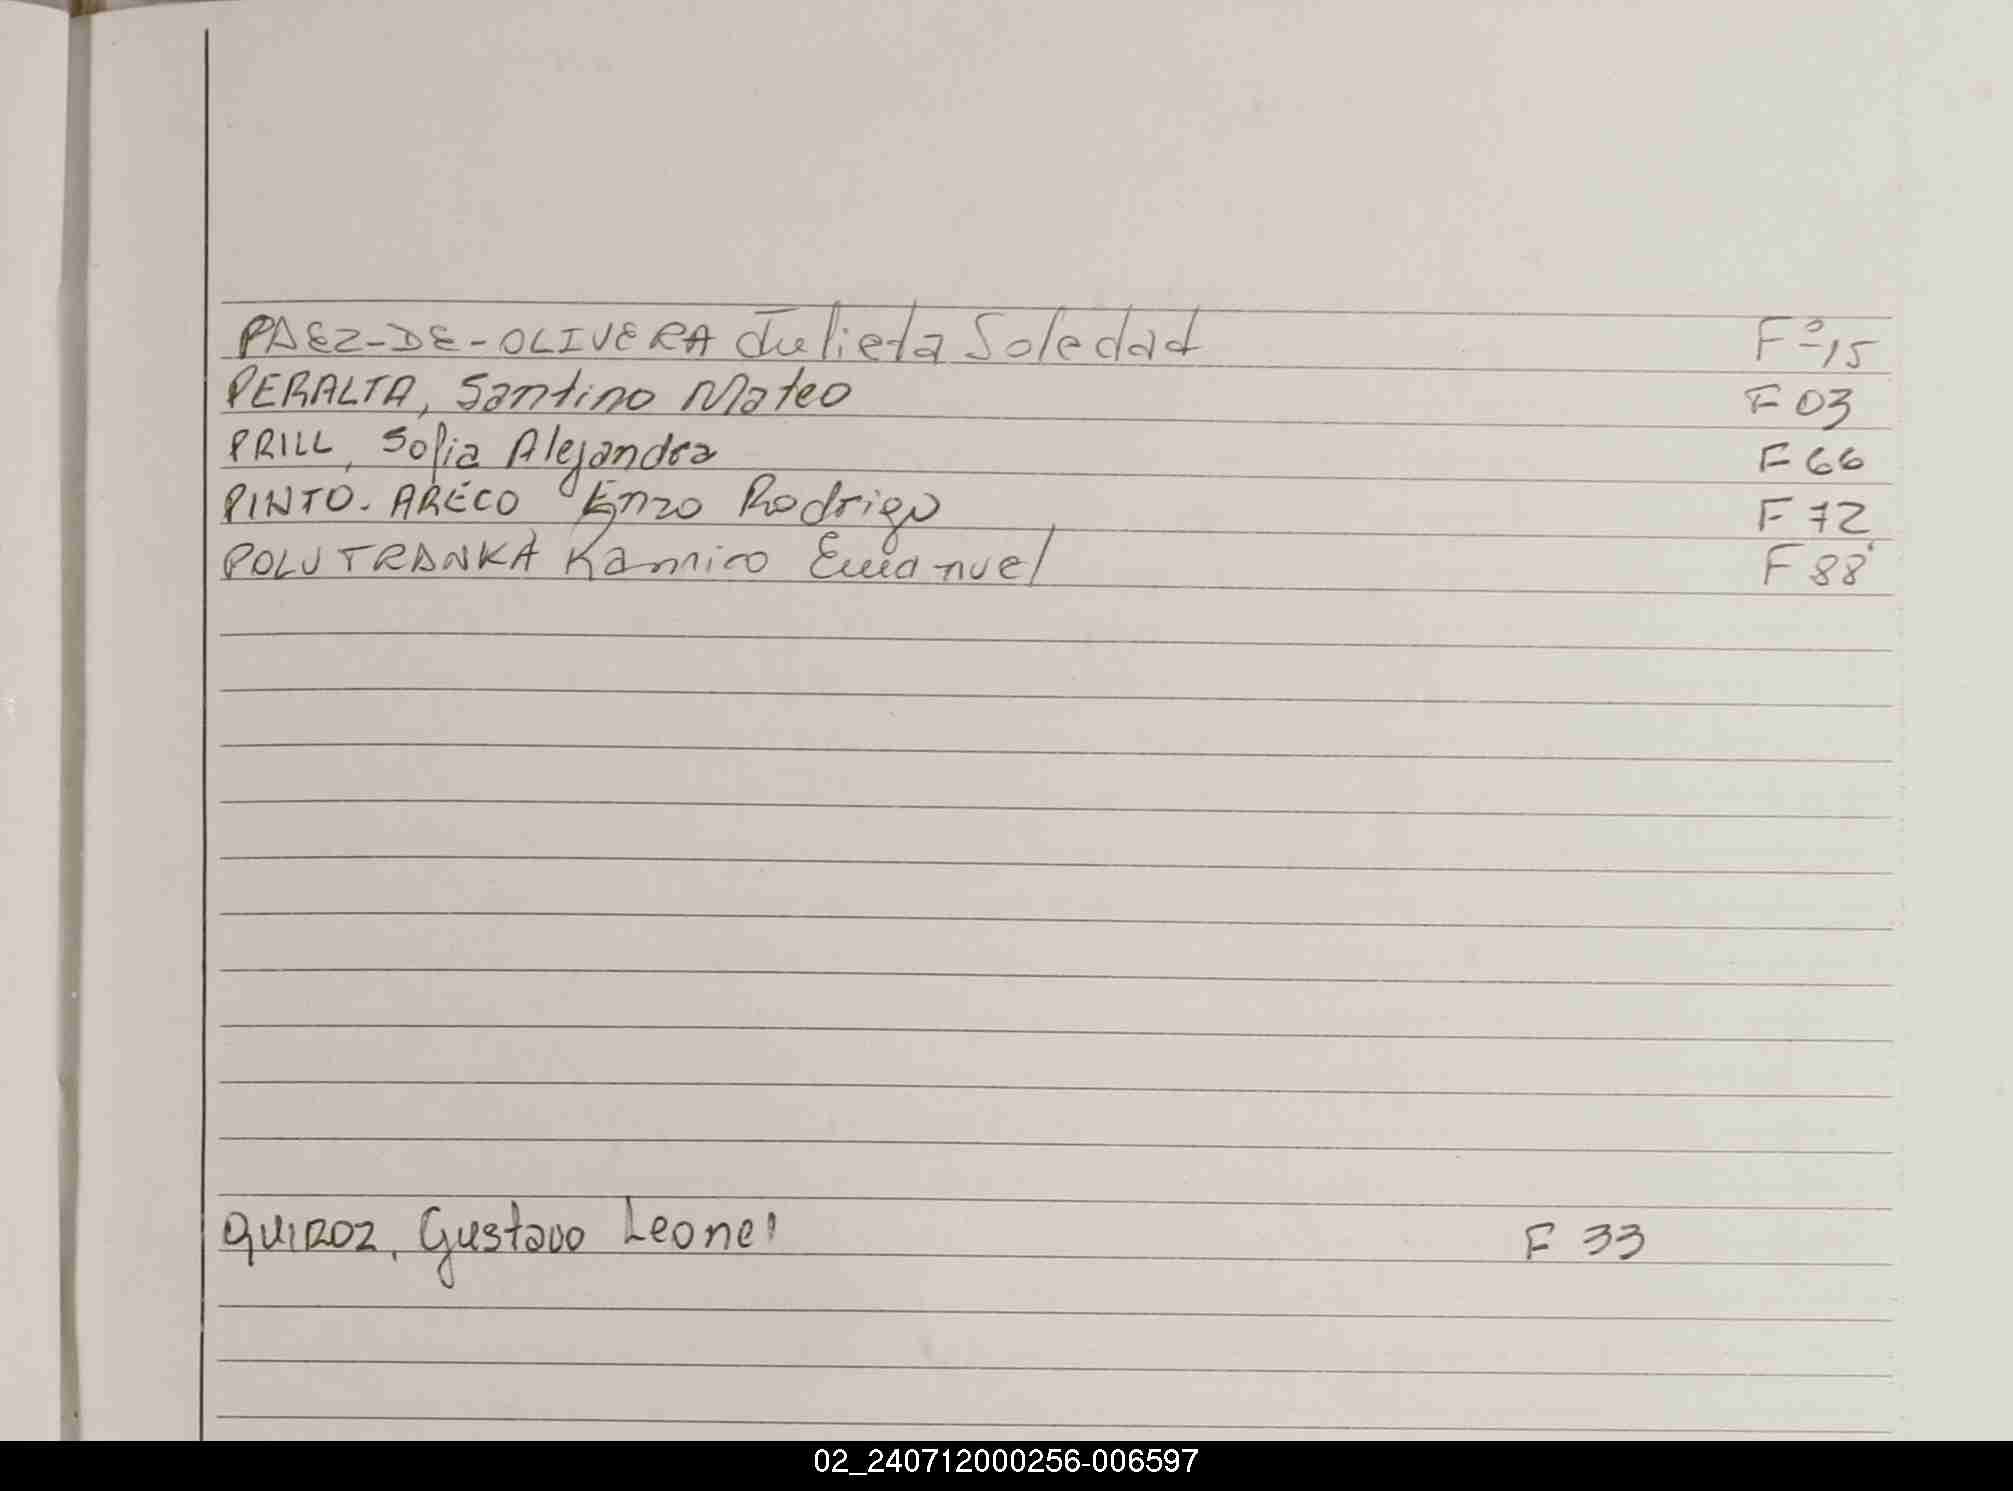 PAEZ-DE-OLIVERA Julieta Soledad F° 15
PERALTA, Santino Mateo F 03
PRILL, Sofia Alejandra F 66
PINTO. ARECO Enzo Rodrigo F 72
POLUTRANKA Ramiro Emanuel F 88
QUIROZ, Gustavo Leonel F 33
02_240712000256-006597